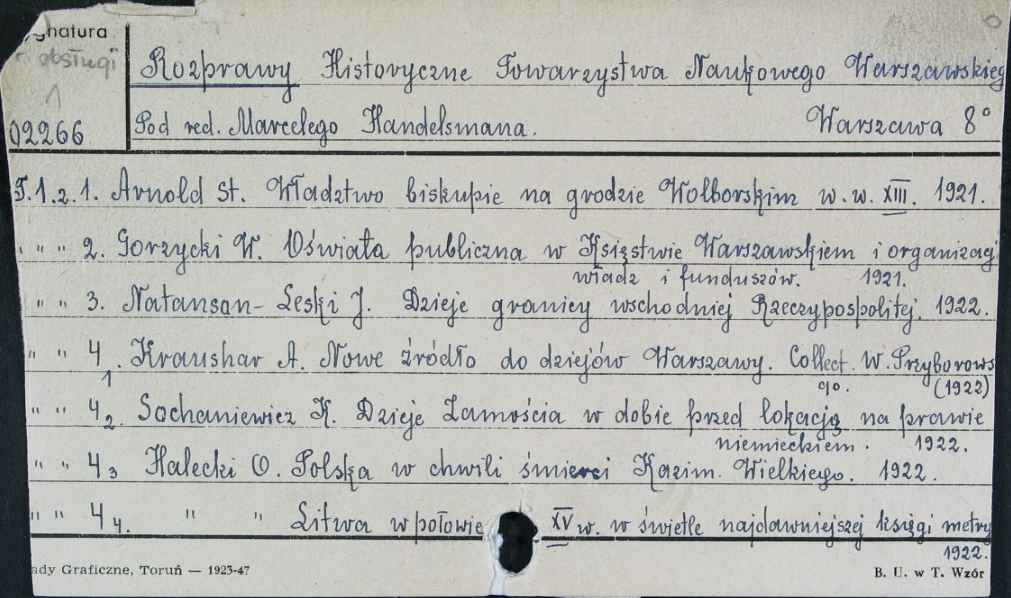 ygnatura
r. obsługi
1
02266
Rozprawy Historyczne Towarzystwa Naukowego Warszawskieg
Pod red. Marcelego Handelsmana. Warszawa 8°
T.1.z.1. Arnold St. Władztwo biskupie na grodzie Wolborskim w. w. XIII. 1921.
" " 2. Gorzycki W. Oświata publiczna w Księstwie Warszawskiem i organizacj
władz i funduszów. 1921.
" " 3. Natanson-Leski J. Dzieje granicy wschodniej Rzeczypospolitej. 1922.
" " 4 1. Kraushar A. Nowe źródło do dziejów Warszawy. Collect. W. Przyborows
go. (1922)
" " 4 2. Sochaniewicz K. Dzieje Zamościa w dobie przed lokacją na prawie
niemieckiem. 1922.
" " 4 3 Halecki O. Polska w chwili śmierci Kazim. Wielkiego. 1922.
" " 4 4. " " Litwa w połowie XV w. w świetle najdawniejszej księgi metry
1922.
ady Graficzne, Toruń — 1923-47 B. U. w T. Wzór